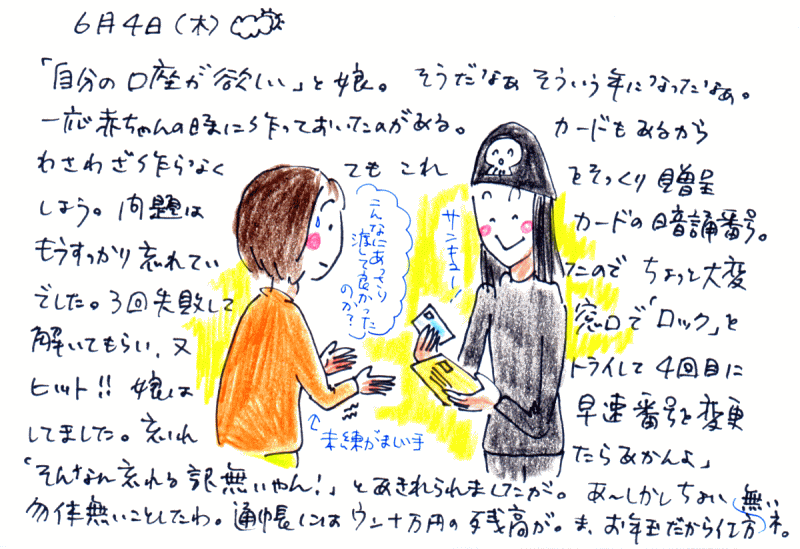 6月4日(木)
「自分の口座が欲しい」と娘。 そうだなぁ そういう年になったなぁ。
一応赤ちゃんの時に作っておいたのがある。 カードもあるから
わざわざ作らなく ても これ をそっくり贈呈
しよう。問題は カードの暗誦番号。
もうすっかり忘れてい たので ちょっと大変
でした。3回失敗して 窓口で「ロック」と
解いてもらい、又 トライして4回目に
ヒット!! 娘は 早速番号を変更
してました。忘れ たらあかんよ」
「そんなん忘れる訳無いやん!」とあきれられましたが。 あ〜しかしちょい
勿体無いことしたわ。通帳にはウン十万円の残高が。ま、お年玉だから仕方無いネ。
こんなにあっさり
渡して良かった
のか?
サンキュー!
未練がましい手